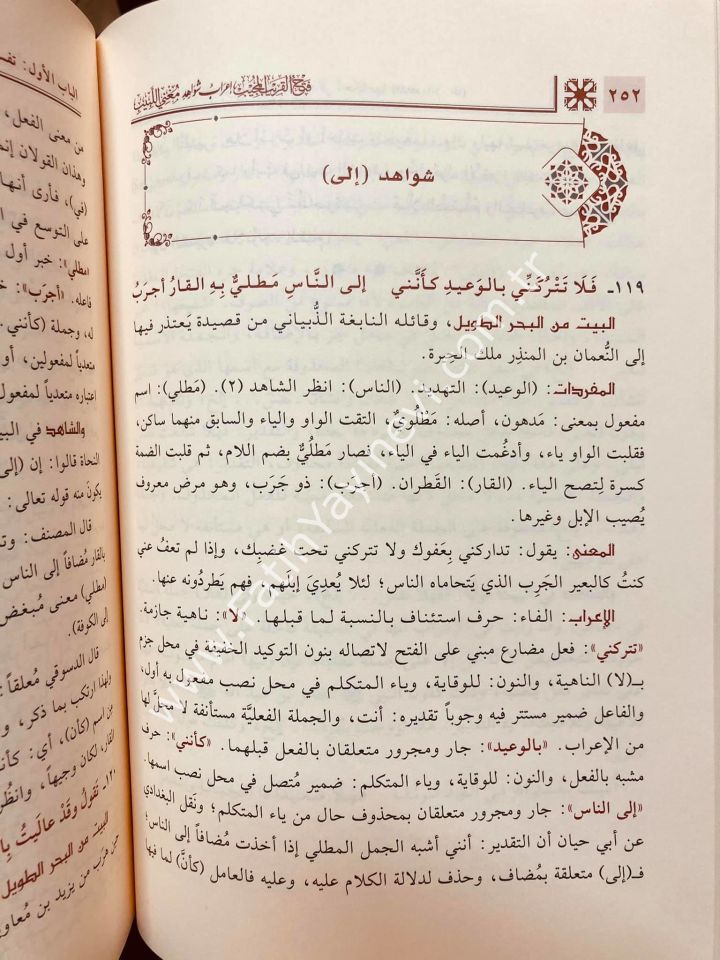 ٢٥٢
فتح القريب المجيب إعراب شواهد مغني اللبيب
شواهد (إلى)
١١٩- فَلَا تَتْرُكَنِّي بالوَعيدِ كأنَّني إلى النَّاسِ مَطليٌّ بِهِ القارُ أجرَبُ
البيت من البحر الطويل، وقائله النابغة الذُّبياني من قصيدة يَعتذر فيها
إلى النُّعمان بن المنذِر ملك الحِيرة.
المفردات: (الوعيد): التهديد. (الناس): انظر الشاهد (٢). (مَطلي): اسم
مفعول بمعنى: مَدهون، أصله: مَطْلُويٌ، التقت الواو والياء والسابق منهما ساكن،
فقلبت الواو ياء، وأدغُمت الياء في الياء، فصار مَطلُيٌّ بضم اللام، ثم قلبت الضمة
كسرة لِتصح الياء. (القار): القَطران. (أجرَب): ذو جَرَب، وهو مرض معروف
يُصيب الإبل وغيرها.
المعنى: يقول: تداركني بِعَفوك ولا تتركني تحت غضبِك، وإذا لم تعفُ عني
كنتُ كالبعير الجَرِب الذي يَتحاماه الناس؛ لئلا يُعدِيَ إبلَهم، فهم يَطردُونه عنها.
الإعراب: الفاء: حرف استئناف بالنسبة لما قبلها. «لا»: ناهية جازمة.
«تتركني»: فعل مضارع مبني على الفتح لاتصاله بنون التوكيد الخفيفة في محل جزم
بـ(لا) الناهية، والنون: للوقاية، وياء المتكلم في محل نصب مفعول به أول،
والفاعل ضمير مستتر فيه وجوباً تقديره: أنت، والجملة الفعليَّة مستأنفة لا محلّ لها
من الإعراب. «بالوعيد»: جار ومجرور متعلقان بالفعل قبلهما. «كأنني»: حرف
مشبه بالفعل، والنون: للوقاية، وياء المتكلم: ضمير مُتصل في محل نصب اسمها.
«إلى الناس»: جار ومجرور متعلقان بمحذوف حال من ياء المتكلم؛ ونَقل البغدادي
عن أبي حيان أن التقدير: أنني أشبه الجمل المطلي إذا أخذت مُضافاً إلى الناس؛
فـ(إلى) متعلقة بمُضاف، وحذف لدلالة الكلام عليه، وعليه فالعامل (كأنَّ) لما فيها
الباب الأول:
من معنى الفعل،
وهذان القولان
(في)، فأرى أنها
على التوسع في
«مطلي»: خبر أول
فاعله. «أجرَب»:
له، وجملة (كأنني
متعدياً لمفعولين، أو
اعتباره متعدياً لمفعول
والشاهد في
النحاة قالوا: إن (إلى
يكونَ منه قوله تعالى:
قال المصنف:
بالقار مُضافاً إلى الناس
(مطلي) معنى مُبغض
إلى الكوفة).
قال الدسوقي مُعلقاً:
ولهذا ارتكب بما ذكر،
من اسم (كأن)، أي:
القار، لكان وجيهاً، وانظُر
١٢٠- تَقولُ وقَدْ عالَيتُ
البيت من البحر الطويل
من يزيد بن
www.FatihYayinevi.com.tr